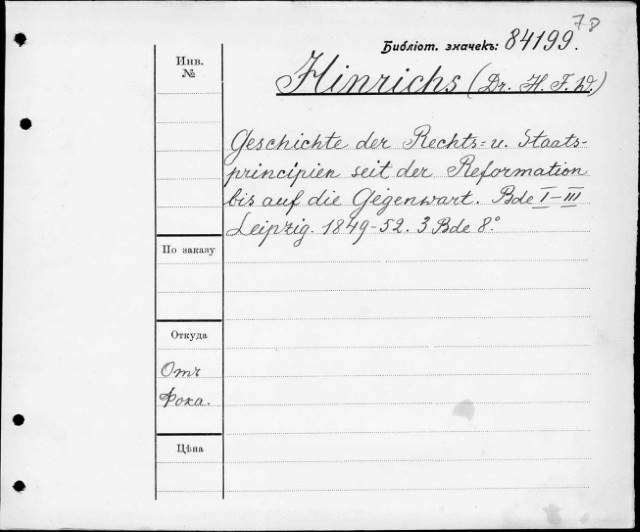 78
Библіот. значекъ: 84199.
Инв.
№
Hinrichs (Dr. H. F. W.)
Geschichte der Rechts= u. Staats-
principien seit der Reformation
bis auf die Gegenwart. Bde I–III
Leipzig. 1849-52. 3 Bde 8°
По заказу
Откуда
Отъ
Фока.
Цѣна